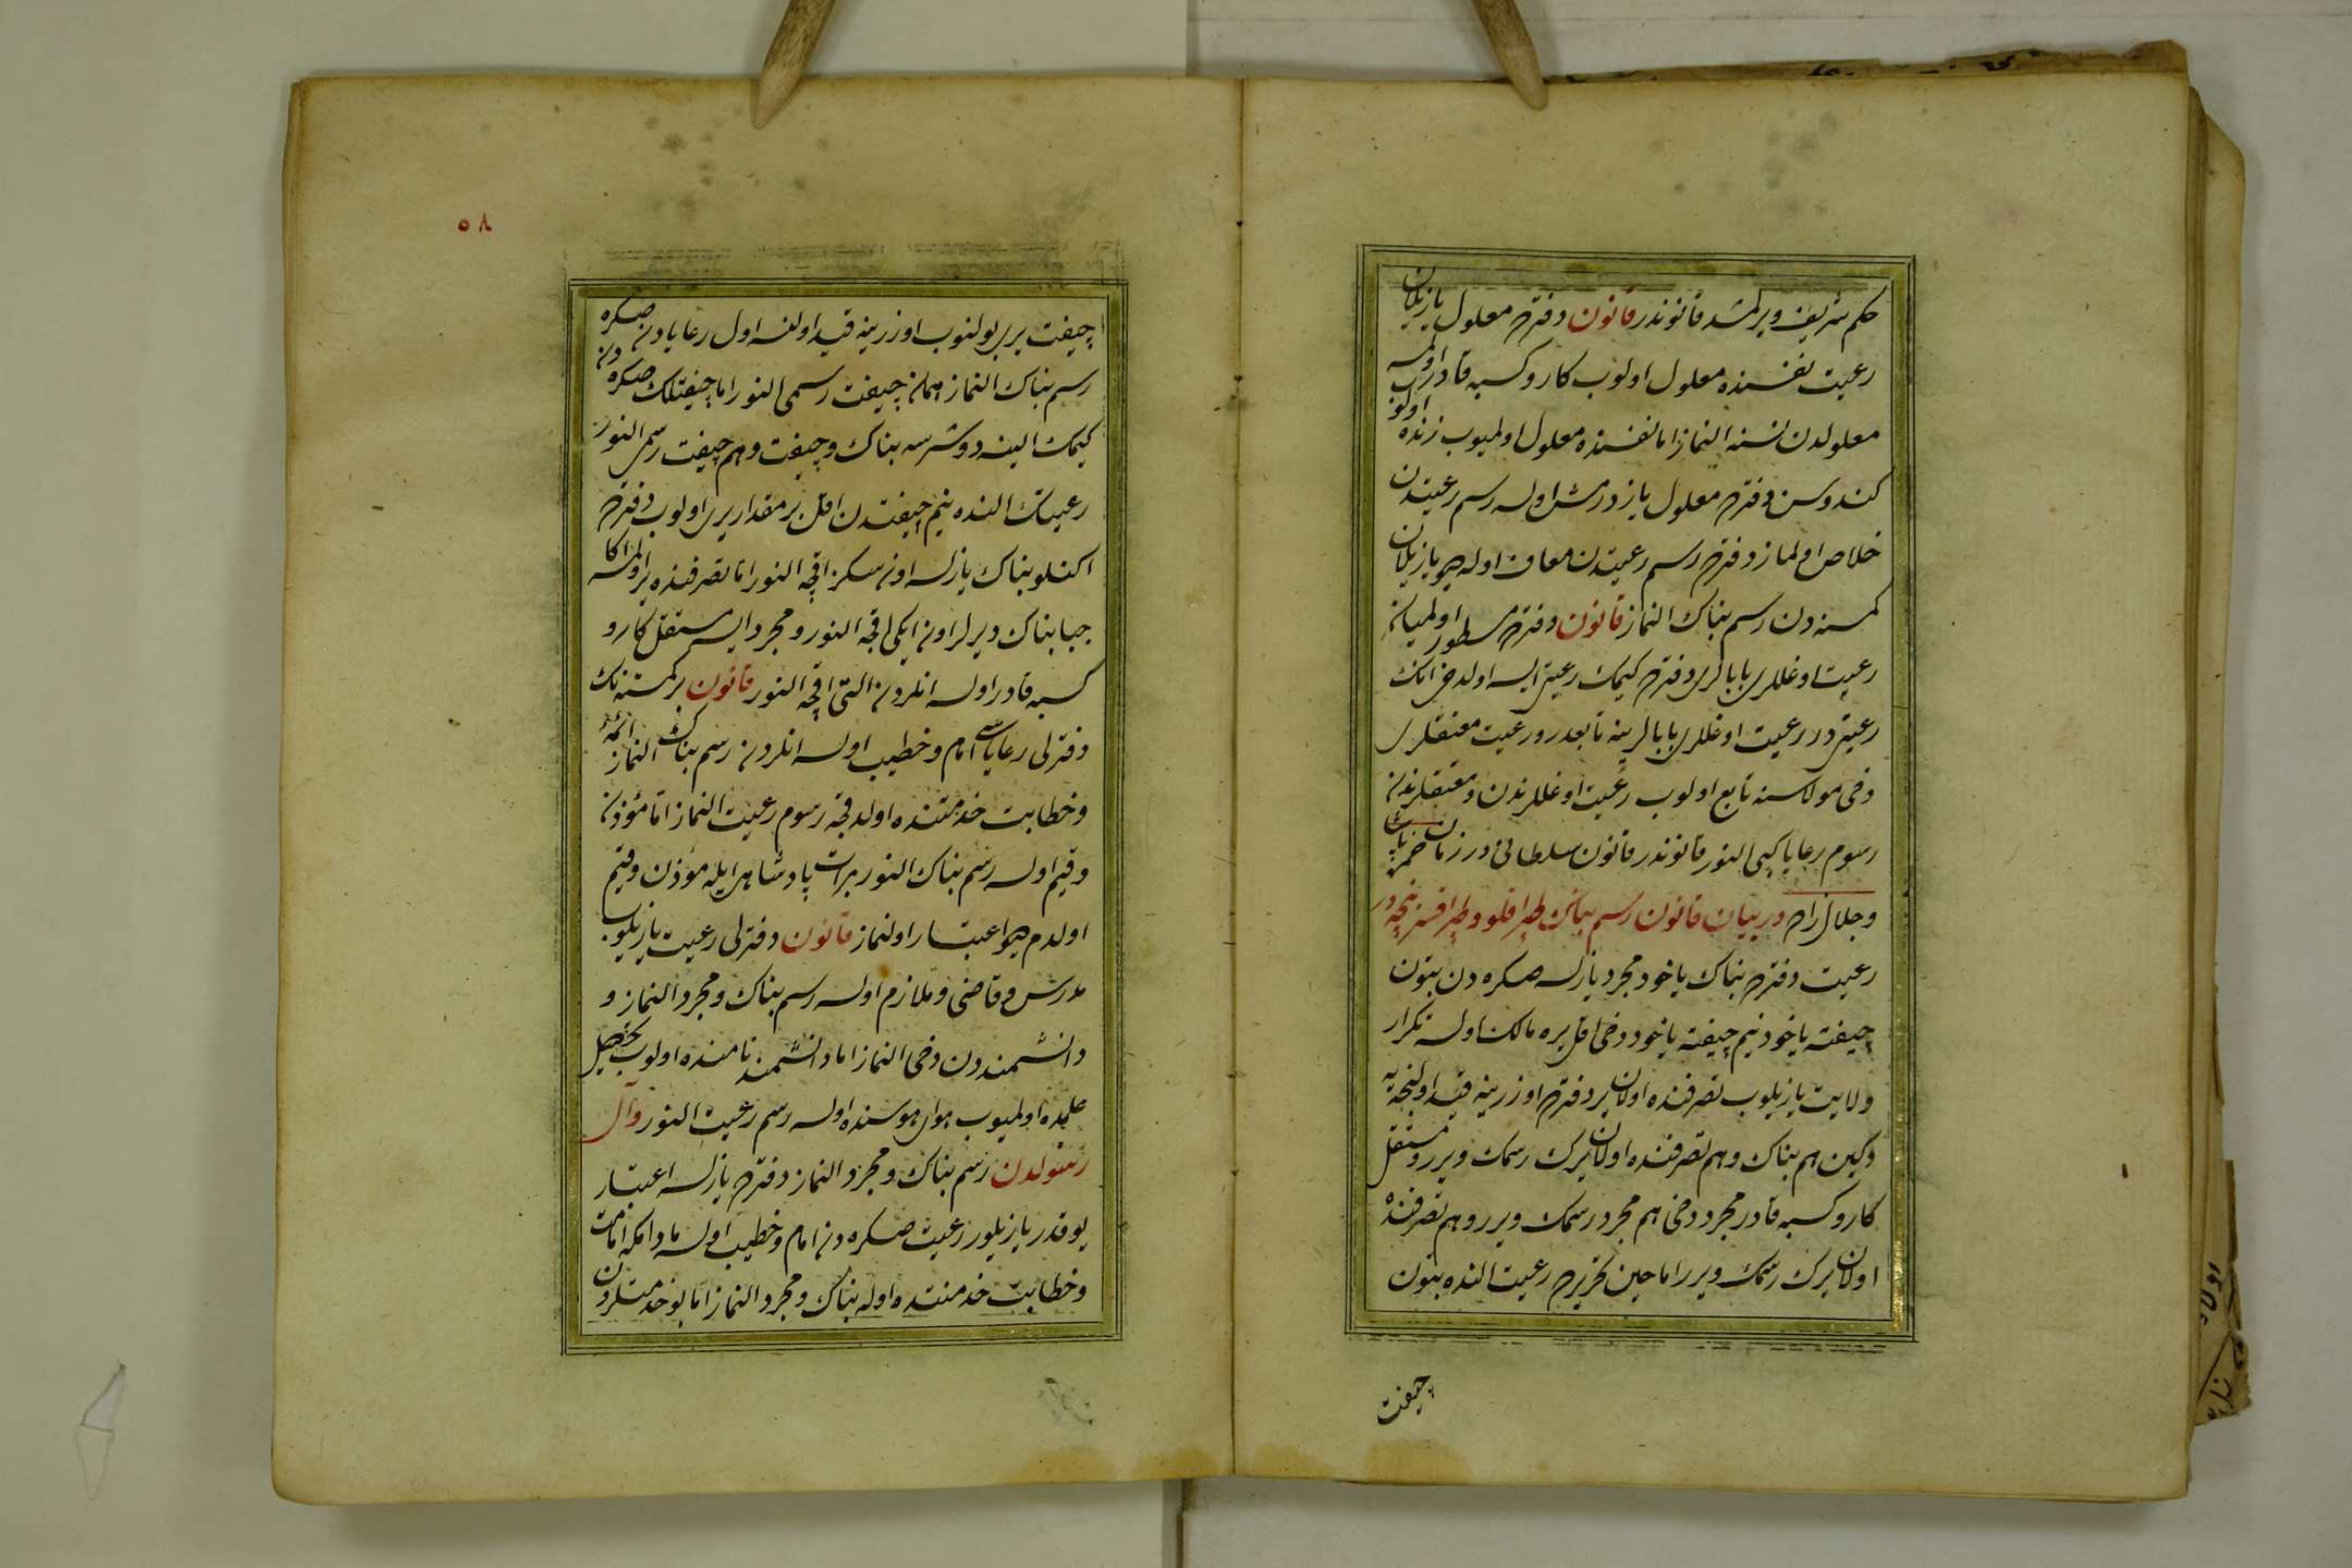 حكم شريف ويرلمشدر قانوندر قانون دفترده معلول يازيلان
رعيت نفسنده معلول اولوب كار وكسبه قادر اولمسه
معلولدن نسنه النماز اما نفسنده معلول اولميوب زنده اولوب
كندوسن دفترده معلول يازدرمش اولسه رسم رعيتدن
خلاص اولماز دفترده رسم رعيتدن معاف اوله ديو يازيلان
كمسنه دن رسم بناك النماز قانون دفترده مسطور اولميان
رعيت اوغللرى بابالرى دفترده كيمك رعيتى ايسه اولدخى انك
رعيتى در رعيت اوغللرى بابالرينه تابعدر ورعيت معتقلرى
دخى مولاسنه تابع اولوب رعيت اوغللرندن ومعتقلرندن
رسوم رعايا كبى النور قانوندر قانون سلطانى در زمان حمزه پاشا
وجلال زاده در بيان قانون رسم بناك
رعيت دفترده بناك ياخود مجرد يازلسه صكره دن بتون
چيفته ياخود نيم چيفته ياخود دخى اقل يره مالك اولسه تكرار
ولايت يازيلوب تصرفنده اولان ير دفترده اوزرينه قيد اولنجه يه
دكين هم بناك وهم تصرفنده اولان يرك رسمك ويرر ومستقل
كار وكسبه قادر مجرد دخى هم مجرد رسمك ويرر وهم تصرفنده
اولان يرك رسمك ويرر اما حين تحريرده رعيت النده بتون
چيفت
٥٨
چيفت يرى بولنوب اوزرينه قيد اولنسه اول رعايادن صكره
رسم بناك النماز همان چيفت رسمى النور اما چيفتلك صكره دن
كيمك الينه دوشرسه بناك وچيفت وهم چيفت رسمى النور
رعيتك النده نيم چيفتدن اقل بر مقدار يرى اولوب دفترده
اكنلو بناك يازلسه اون سكز اقچه النور اما تصرفنده ير اولمسه اكا
جبا بناك ديرلر اون ايكى اقچه النور ومجرد ايسه مستقل كار و
كسبه قادر اولسه انلردن التى اقچه النور قانون بر كمسنه نك
دفترلى رعاياسى امام وخطيب اولسه انلردن رسم بناك النماز ائمه
وخطابت خدمتنده اولدقچه رسوم رعيت النماز اما مؤذن
وقيم اولسه رسم بناك النور برات پادشاهى ايله مؤذن وقيم
اولدم ديو اعتبار اولنماز قانون دفترلى رعيت يازيلوب
مدرس وقاضى وملازم اولسه رسم بناك ومجرد النماز و
دانشمنددن دخى النماز اما دانشمند نامنده اولوب تحصيل
علمده اولميوب هواى هوسنده اولسه رسم رعيت النور وآل
رسولدن رسم بناك ومجرد النماز دفترده يازلسه اعتبار
يوقدر يازيلور رعيت صكره دن امام وخطيب اولسه مادامكه امامت
وخطابت خدمتنده اوله بناك ومجرد النماز اما بو خدمتلردن